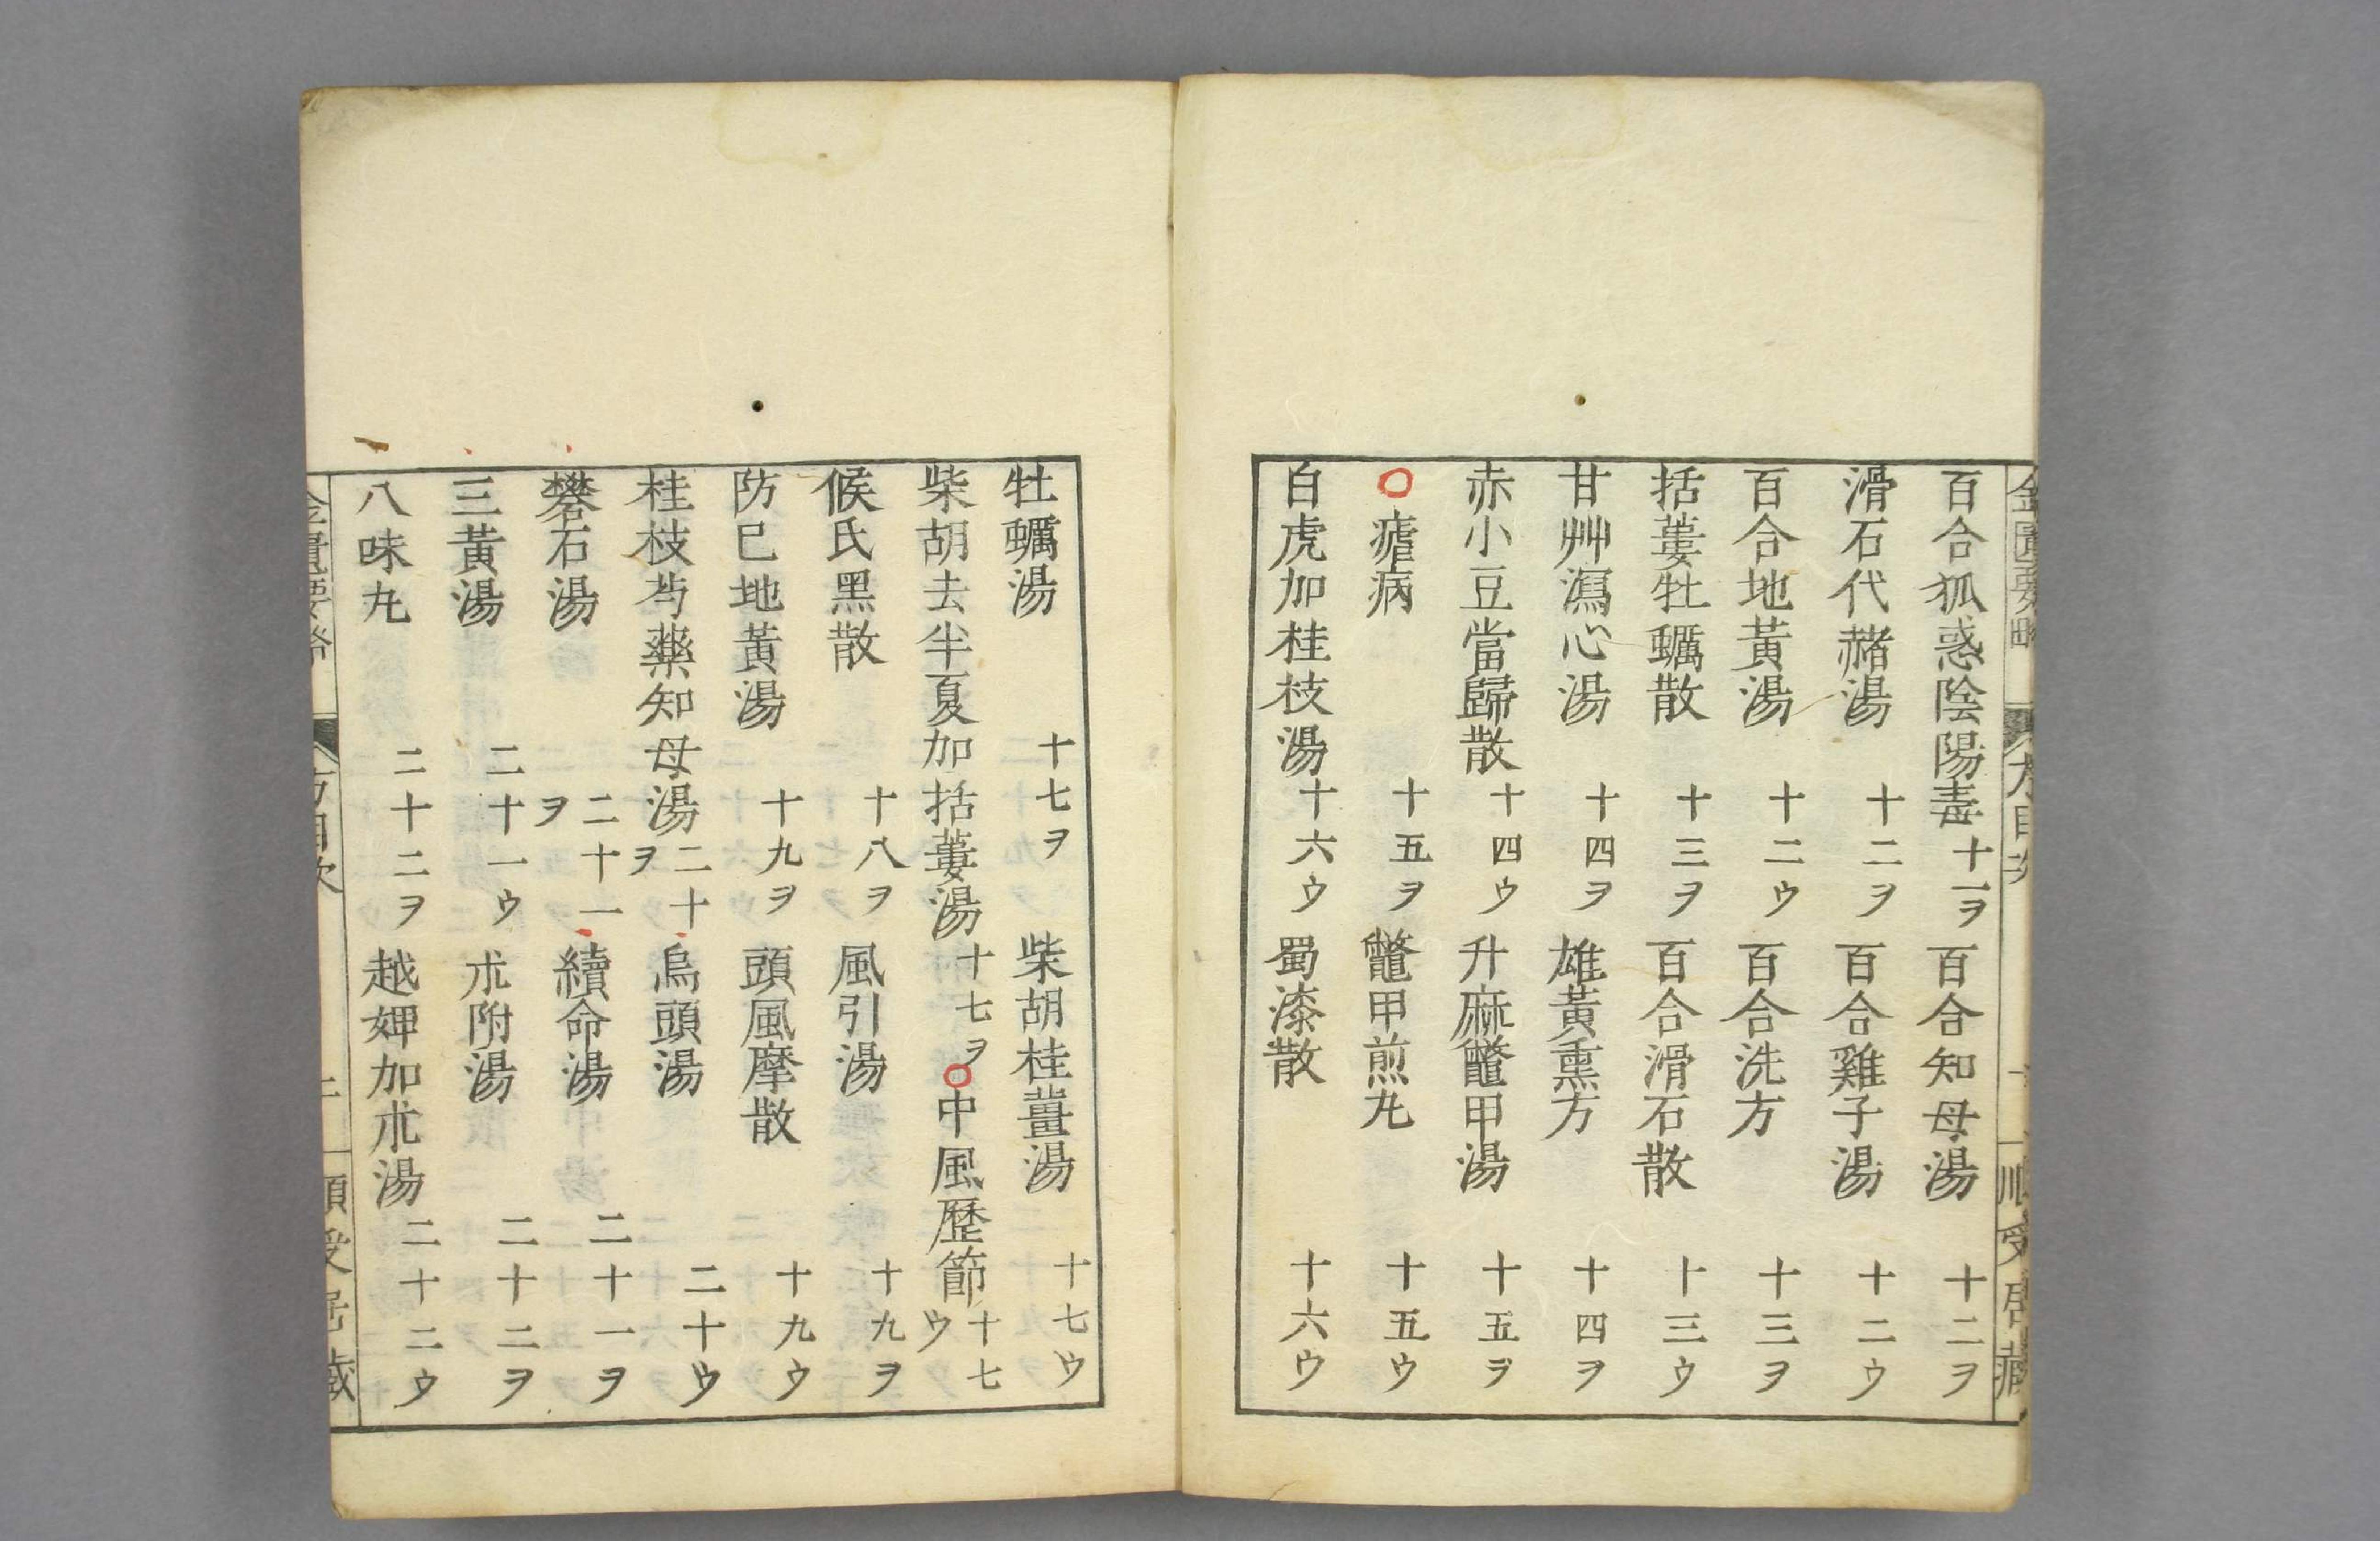 百合狐惑陰陽毒十一ヲ 百合知母湯 十二ヲ
滑石代赭湯 十二ヲ 百合雞子湯 十二ウ
百合地黃湯 十二ウ 百合洗方 十三ヲ
括蔞牡蠣散 十三ヲ 百合滑石散 十三ウ
甘艸瀉心湯 十四ヲ 雄黃熏方 十四ヲ
赤小豆當歸散 十四ウ 升麻鼈甲湯 十五ヲ
○瘧病 十五ヲ 鼈甲煎九 十五ウ
白虎加桂枝湯 十六ウ 蜀漆散 十六ウ
牡蠣湯 十七ヲ 柴胡桂薑湯 十七ウ
柴胡去半夏加括蔞湯 十七ヲ ○中風歷節 十七ウ
候氏黑散 十八ヲ 風引湯 十九ヲ
防已地黃湯 十九ヲ 頭風摩散 十九ウ
桂枝芍藥知母湯 二十ヲ 烏頭湯 二十ウ
礬石湯 二十一ヲ 續命湯 二十一ヲ
三黃湯 二十一ウ 朮附湯 二十二ヲ
八味九 二十二ヲ 越婢加朮湯 二十二ウ